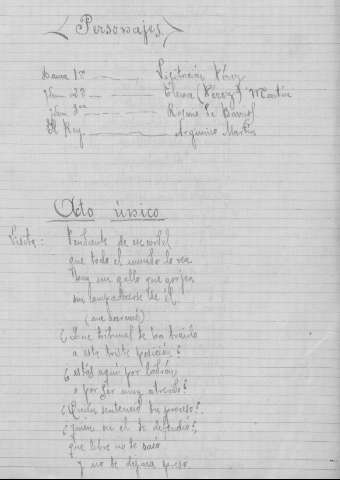 Personajes
Dama 1ª Visitación Pérez
Idem 2ª Elena (Pérez) Martín
Idem 3ª Rosana de
El Rey Argimiro Martín
Acto único
Visita: Pendiente de un cordel
que todo el mundo lo vea
Hay un gallo que
sin compadecerse de él
¿Que tribunal te ha traido
a este triste posición?
¿estás aquí por ladrón,
o por ser muy atrevido?
¿Quién sentenció tu proceso?
¿quien fue el te defendió?
que libre no te sacó
y no te dejara preso